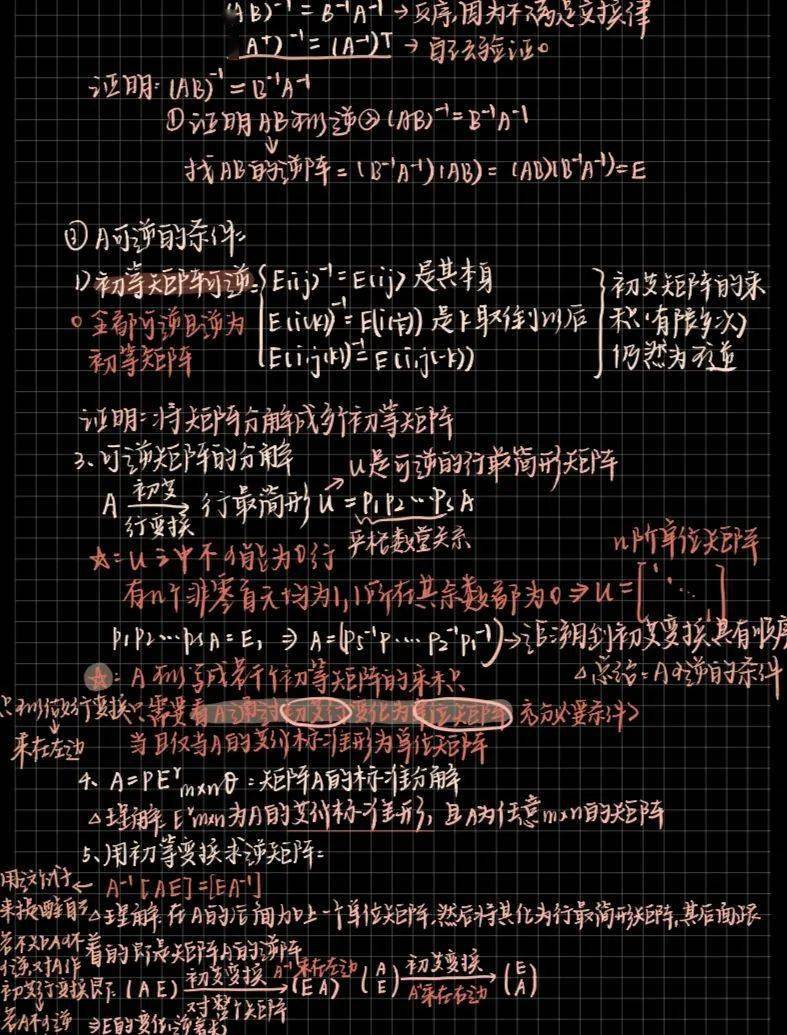 (AB)⁻¹ = B⁻¹A⁻¹ → 反序,因为不满足交换律
(Aᵀ)⁻¹ = (A⁻¹)ᵀ → 自去验证。
证明: (AB)⁻¹ = B⁻¹A⁻¹
① 证明AB可逆 ② (AB)⁻¹ = B⁻¹A⁻¹
↓
找AB的逆阵 = (B⁻¹A⁻¹)(AB) = (AB)(B⁻¹A⁻¹) = E
② A可逆的条件:
1) 初等矩阵可逆: E(ij)⁻¹ = E(ij) 是其本身
。全部可逆且逆为 E(i(k))⁻¹ = E(i(1/k)) 是k取倒以后
初等矩阵 E(i,j(k))⁻¹ = E(i,j(-k))
初等矩阵的乘
积(有限多次)
仍然为可逆
证明:将矩阵分解成多个初等矩阵
3、可逆矩阵的分解
U是可逆的行最简形矩阵
A 初变 行变换 → 行最简形 U = P₁P₂…PsA
☆: U 中不可能为0行 严格数量关系
n阶单位矩阵
有n个非零首元均为1,1所在其余数都为0 ⇒ U = [1 ⋱ 1]
P₁P₂…PsA = E, ⇒ A = (Ps⁻¹P…P₂⁻¹P₁⁻¹) → 运用到初等变换具有顺序
☆: A可写成若干个初等矩阵的乘积 △总结:A可逆的条件
只可做初行变换 只需要看A通过初变行变化为单位矩阵 充分必要条件>
↓
乘在左边
当且仅当A的等价标准形为单位矩阵
4、A=PEʳₘₓₙQ:矩阵A的标准分解
△理解:Eʳₘₓₙ为A的等价标准形,且A为任意m×n的矩阵
5、用初等变换求逆矩阵:
用这个式子 ← A⁻¹[A E] = [E A⁻¹]
来提醒自己 △理解:在A的后面加上一个单位矩阵,然后将其化为行最简形矩阵,其后面跟
着的即是矩阵A的逆阵
若不知A可不
可逆对A作
初等行变换即: (A E) 初变变换 A⁻¹乘在左边 对整个矩阵 → (E A) (A E) 初变变换 A⁻¹乘在右边 → (E A)
若A不可逆